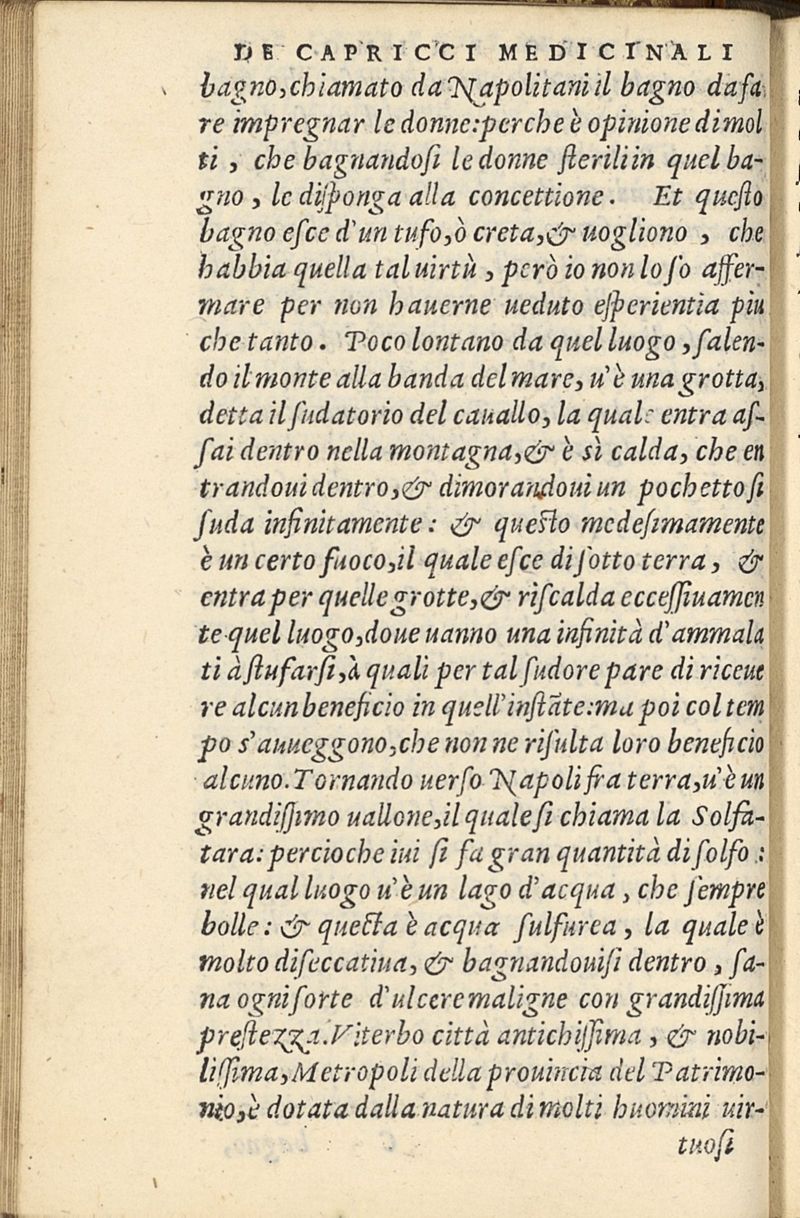 DE CAPRICCI MEDICINALI
bagno, chiamato da Napolitani il bagno da fa
re impregnar le donne: perche è opinione di mol
ti, che bagnandosi le donne sterili in quel ba-
gno, le disponga alla concettione. Et questo
bagno esce d'un tufo, ò creta, & uogliono, che
habbia quella tal uirtù, però io non lo so affer-
mare per non hauerne ueduto esperientia piu
che tanto. Poco lontano da quel luogo, salen-
do il monte alla banda del mare, u'è una grotta,
detta il sudatorio del cauallo, la quale entra as-
sai dentro nella montagna, & è sì calda, che en
trandoui dentro, & dimorandoui un pochetto si
suda infinitamente: & questo medesimamente
è un certo fuoco, il quale esce di sotto terra, &
entra per quelle grotte, & riscalda eccessiuamen
te quel luogo, doue uanno una infinità d'ammala
ti à stufarsi, à quali per tal sudore pare di riceue
re alcun beneficio in quell'instāte: ma poi col tem
po s'auueggono, che non ne risulta loro beneficio
alcuno. Tornando uerso Napoli fra terra, u'è un
grandissimo uallone, il quale si chiama la Solfa-
tara: percioche iui si fa gran quantità di solfo:
nel qual luogo u'è un lago d'acqua, che sempre
bolle: & questa è acqua sulfurea, la quale è
molto diseccatiua, & bagnandouisi dentro, sa-
na ogni sorte d'ulcere maligne con grandissima
prestezza. Viterbo città antichissima, & nobi-
lissima, Metropoli della prouincia del Patrimo-
nio, è dotata dalla natura di molti huomini uir-
tuosi